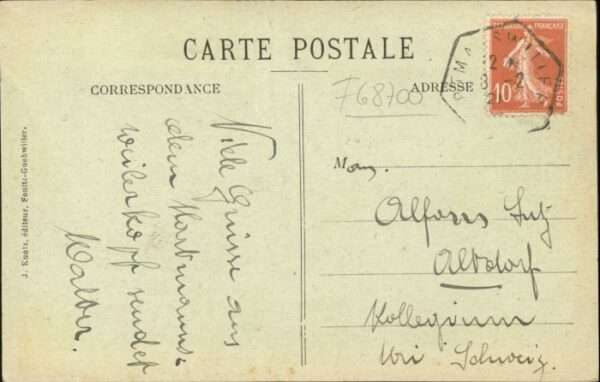 CARTE POSTALE
CORRESPONDANCE
ADRESSE
F68700
10
POSTES
Viele Grüsse aus
dem Hartmanns-
weilerkopf sendet
Walter.
Alfons
Altdorf
Kollegium
Uri Schweiz.
J. Kuntz, éditeur, Feniti-Guebwiller.